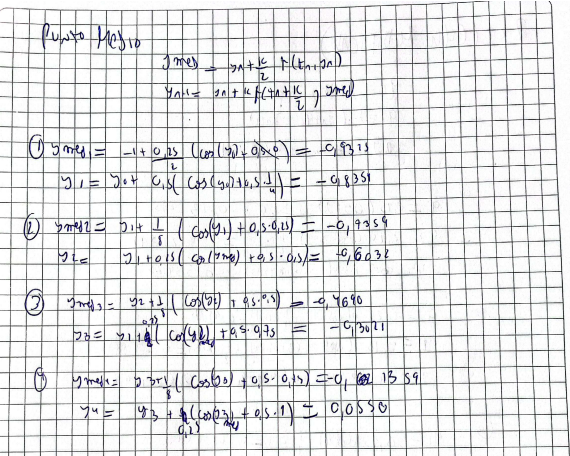 Punto Medio
ymed = yn + k/2 f(tn, yn)
yn+1 = yn + k f(tn + k/2, ymed)
① ymed1 = -1 + 0,25/2 (cos(y0) + 0,5·0) = -0,9325
y1 = y0 + 0,5( cos(y0) + 0,5·1/4) = -0,8351
② ymed2 = y1 + 1/8 ( cos(y1) + 0,5·0,25) = -0,7359
y2 = y1 + 0,25( cos(ymed) + 0,5·0,5) = -0,6032
③ ymed3 = y2 + 1/8 ( cos(y2) + 0,5·0,5) = -0,4690
y3 = y2 + 0,25 ( cos(y2)med + 0,5·0,75 = -0,3021
④ ymed4 = y3 + 1/8 ( cos(y3) + 0,5·0,75) = -0,1359
y4 = y3 + 0,25 (cos(y3)med + 0,5·1) = 0,0550